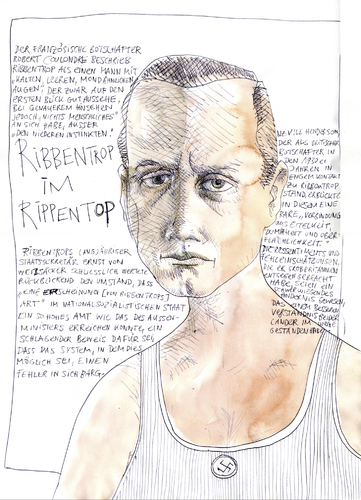 DER FRANZÖSISCHE BOTSCHAFTER
ROBERT COULONDRE BESCHRIEB
RIBBENTROP ALS EINEN MANN MIT
„KALTEN, LEEREN, MONDÄHNLICHEN
AUGEN", DER ZWAR AUF DEN
ERSTEN BLICK GUT AUSSEHE,
BEI GENAUEREM HINSEHEN
JEDOCH „NICHTS MENSCHLICHES"
AN SICH HABE, AUSSER
„DEN NIEDEREN INSTINKTEN."
RiBBENTROP
iM
RiPPENTOP
RIBBENTROPS LANGJÄHRIGER
STAATSSEKRETÄR ERNST VON
WEIZSÄCKER SCHLIESSLICH WERTETE
RÜCKBLICKEND DEN UMSTAND, DASS
„EINE ERSCHEINUNG [VON RIBBENTROPS]
ART" IM NATIONALSOZIALISTISCHEN STAAT
EIN SO HOHES AMT WIE DAS DES AUSSEN-
MINISTERS ERREICHEN KONNTE, EIN
SCHLAGENDER BEWEIS DAFÜR SEI,
DASS DAS SYSTEM, IN DEM DIES
MÖGLICH SEI, EINEN
FEHLER IN SICH BARG.
NEVILLE HENDERSON,
DER ALS BOTSCHAFTER IN
DEN 1930ER
JAHREN IN
ENGEM KONTAKT
ZU RIBBENTROP
STAND, ERBLICKTE
IN DIESEM EINE
VERBINDUNG
AUS EITELKEIT,
DUMMHEIT UND OBER-
FLÄCHLICHKEIT".
DIE RESSENTIMENTS UND
FEHLEINSCHÄTZUNGEN,
DIE ER GROSSBRITANNIEN
ENTGEGEN GEBRACHT
HABE, SEIEN EIN
HINDERNIS GEWESEN,
DAS EINEM BESSEREN
VERSTÄNDNIS BEIDER
LÄNDER IM WEGE
GESTANDEN